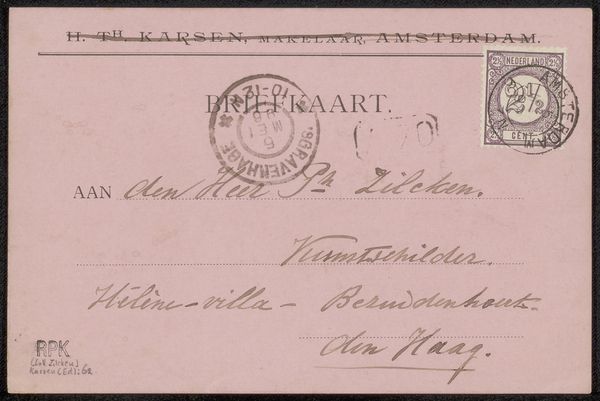 H. TH. KARSEN, MAKELAAR, AMSTERDAM.
NEDERLAND
2½ 2½
2½
CENT
AMSTERDAM
BRIEFKAART.
'SGRAVENHAGE
5 MEI
10-12
AAN den Heer Ph Zilcken.
Kunstschilder.
Hélène-villa - Bezuidenhout.
den Haag.
RPK
(Coll. Zilcken)
Karsen (Ed): 62